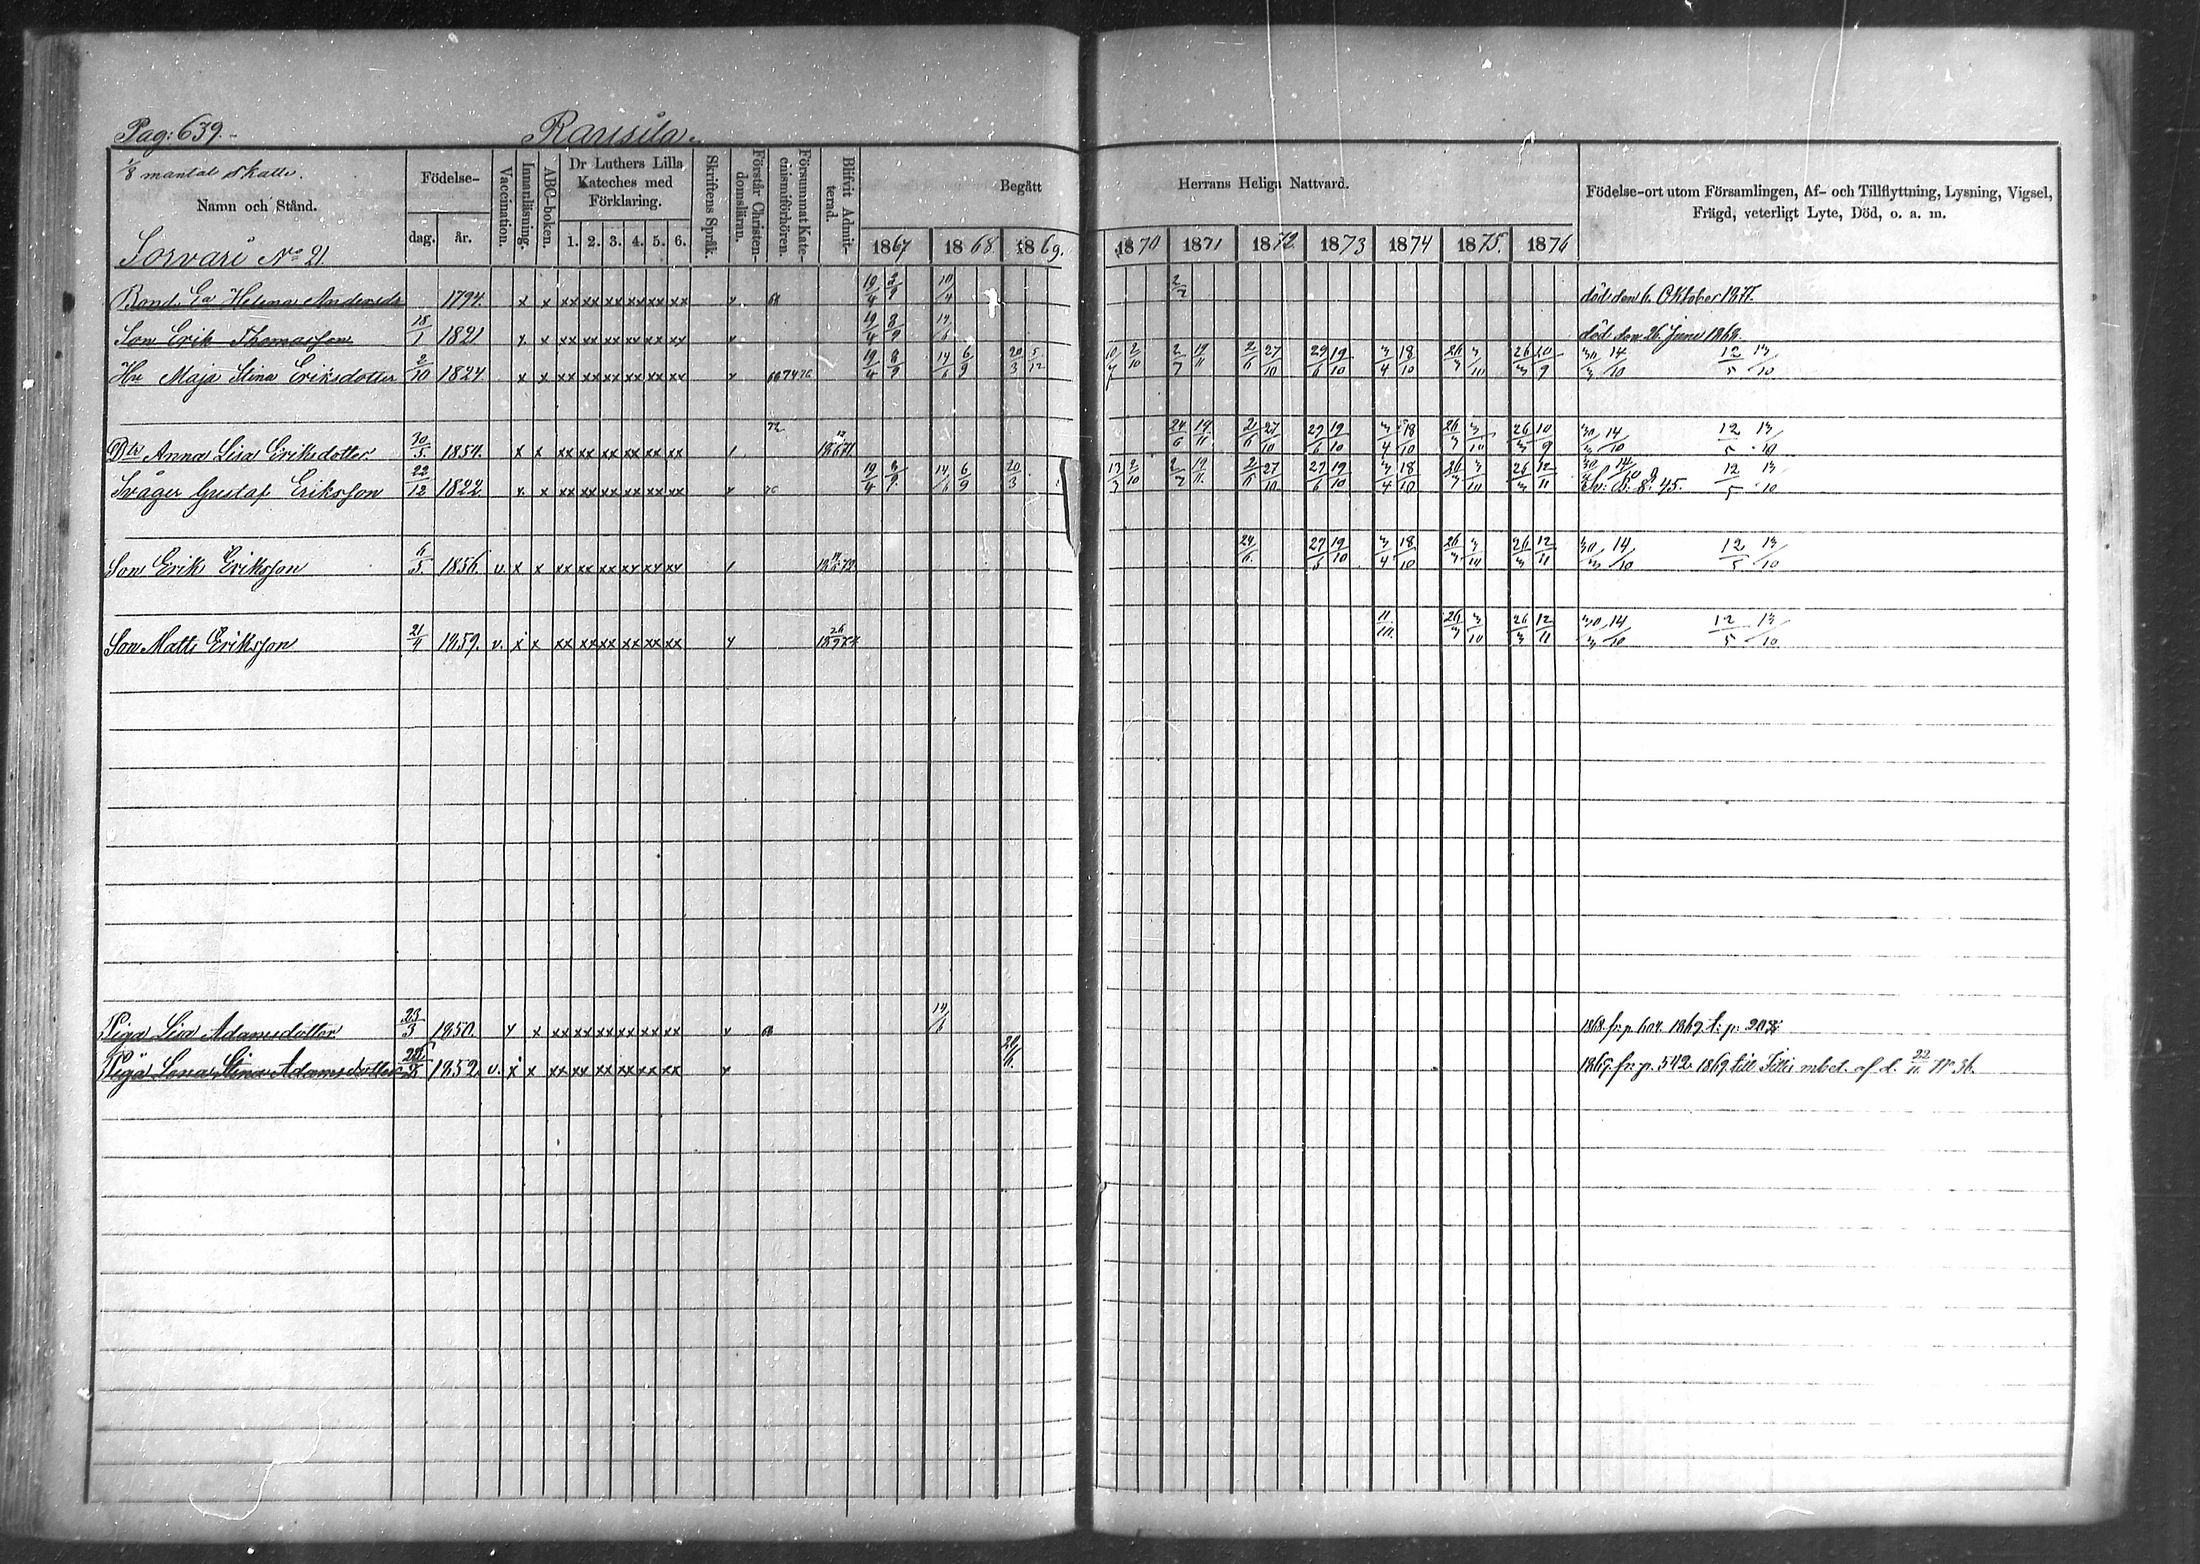 Pag: 639.
Rausila.
1/8 mantal skatte.
Namn och Stånd.
Sorvari No 21.
Födelse-
dag. år.
Vaccination.
Innanläsning.
ABC-boken.
Dr Luthers Lilla Kateches med Förklaring.
1. 2. 3. 4. 5. 6.
Skriftens Språk.
Förstår Christendomsläran.
Försummat Katechismiförhören.
Blifvit Admitterad.
Begått Herrans Heliga Nattvard.
1867 1868. 1869. 1870 1871 1872 1873 1874 1875 1876
Födelse-ort utom Församlingen, Af- och Tillflyttning, Lysning, Vigsel,
Frägd, veterligt Lyte, Död, o. a. m.
Helena Andersdr 1794. x x xx xx xx xx xx xx 19/4 död den 6. Oktober
Son Erik Thomasson 18/1 1821 x x xx xx xx xx xx xx 19/4 8/9 14/6 död den 26. Juni 1868.
Hu Maja Stina Eriksdotter 2/10 1824. x x xx xx xx xx xx xx 19/4 8/9 14/6 6/9 20/3 5/12 2/10 2/7 19/11 2/6 27/10 29/6 19/10 3/4 18/10 26/3 3/10 26/3 20/9 30/3 14/10 12/5 13/10
Dtr Anna Lisa Eriksdotter 30/5 1854. x x xx xx xx xx xx xx 24/6 19/11 2/6 27/10 29/6 19/10 3/4 18/10 26/3 3/10 26/3 10/9 30/3 14/10 12/5 13/10
Svåger Gustaf Eriksson 22/12 1822. x x xx xx xx xx xx xx 19/4 8/9 14/6 6/9 20/3 13/3 2/10 2/7 19/11 2/6 27/10 29/6 19/10 3/4 18/10 26/3 3/10 26/3 12/11 30/3 14/10 12/5 13/10
Son Erik Eriksson 6/5 1856. v. x x xx xx xx xx xx xx 24/6 29/6 19/10 3/4 18/10 26/3 3/10 26/3 12/11 30/3 14/10 12/5 13/10
Son Matts Eriksson 21/9 1859. v. x x xx xx xx xx xx xx 11/10 26/3 3/10 26/3 12/11 30/3 14/10 12/5 13/10
Piga Lisa Adamsdotter 23/3 1850. x xx xx xx xx xx xx 14/6 1868. fr. p. 604. 1869. t. p.
Piga Stina Adamsdotter 1852. v. x x xx xx xx xx xx xx 1867. fr. p. 542. 1869 till mbet. af d. 22/11 No 36.